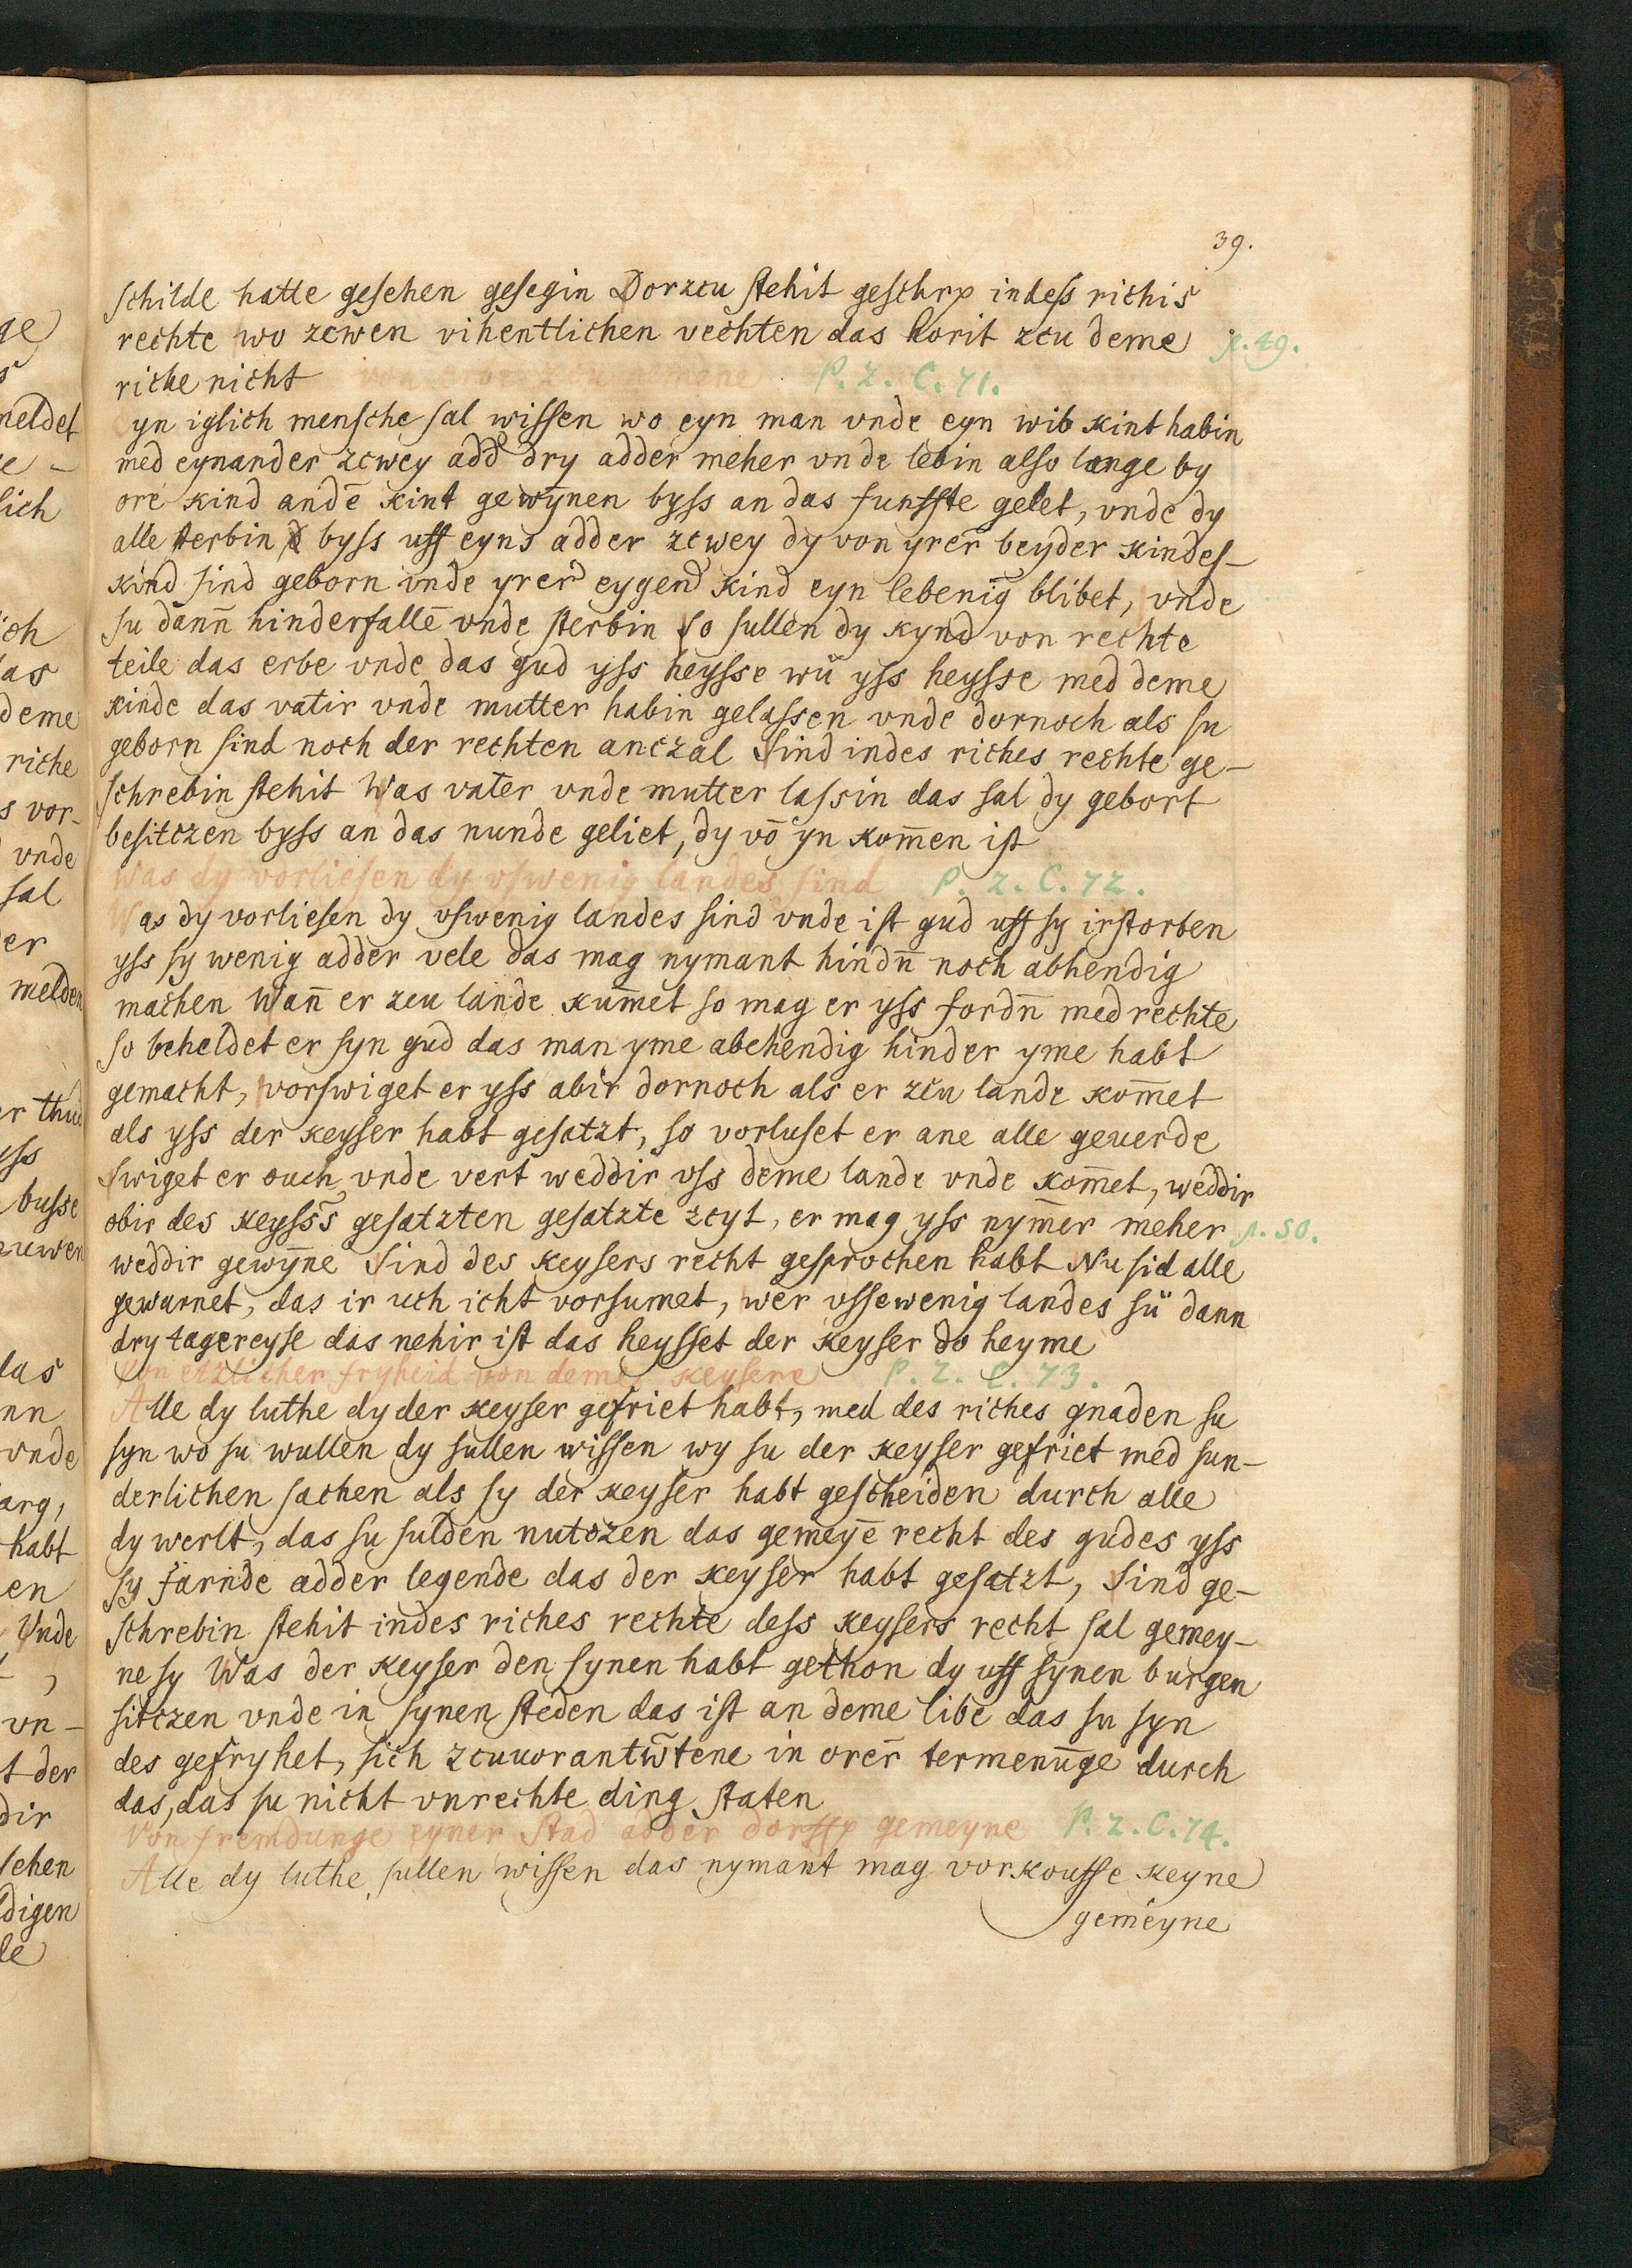 39.
schilde hatte gesehen gesegin Dorzcu stehit geschrp indess richis
rechte wo zcwen vihentlichen vechten das horit zcu deme p. 49.
riche nicht von P. 2. C. 71.
yn iglich mensche sal wissen wo eyn man vnde eyn wib kint habin
med eynander zcwey add dry adder meher vnde lebin also lange by
ore kind andē kint gewȳnen byss an das funffte gelet, vnde dy
alle sterbin byss uff eyns adder zcwey dy von yrer̄ beyder kindes-
kind sind geborn vnde yrer̄ eygend kind eyn lebenig blibet, vnde
su dann̄ hinderfallē vnde sterbin so sullen dy kynd von rechte
teile das erbe vnde das gud yss heysse wu yss heysse med deme
kinde das vatir vnde mutter habin gelassen vnde dornoch als su
geborn sind noch der rechten anczal Sind indes riches rechte ge-
schrebin stehit Was vater vnde mutter lassin das sal dy gebort
besitczen byss an das nunde geliet, dy vō yn kom̄en ist
Was dy vorliesen dy vswenig landes sind P. 2. C. 72.
Was dy vorliesen dy vswenig landes sind vnde ist gud uff sy irstorben
yss sy wenig adder vele das mag nymant hindn̄ noch abhendig
machen Wan̄ er zcu lande kum̄et so mag er yss fordn̄ med rechte
so beheldet er syn gud das man yme abehendig hinder yme habt
gemacht, vorswiget er yss abir dornoch als er zcu lande kom̄et
als yss der keyser habt gesatzt, so vorluset er ane alle geuerde
Swiget er ouch vnde vert weddir vss deme lande vnde kom̄et, weddir
obir des keyss̄s gesatzten gesatzte zcyt, er mag yss nym̄er meher p. 50.
weddir gewȳne Sind des keysers recht gesprochen habt Nu sid alle
gewarnet, das ir uch icht vorsumet, wer vssewenig landes sü dann
dry tagereyse das nehir ist das heysset der keyser do heyme
Von etzlicher fryheid von deme keysere P. 2. C. 73.
Alle dy luthe dy der keyser gefriet habt, med des riches gnaden su
syn wo su wullen dy sullen wissen wy su der keyser gefriet med sun-
derlichen sachen als sy der keyser habt gescheiden durch alle
dy werlt, das su sulden nutczen das gemeyē recht des gudes yss
sy farnde adder legende das der keyser habt gesatzt, Sind ge-
schrebin stehit indes riches rechte dess keysers recht sal gemey-
ne sy Was der keyser den synen habt gethon dy uff synen burgen
sitczen vnde in synen steden das ist an deme libe das su syn
des gefryhet, sich zcuuorantw̄tene in orer̄ termenūge durch
das, das su nicht vnrechte ding staten
Von fremdunge eyner stad adder dorffp gemeyne P. 2. C. 74.
Alle dy luthe sullen wissen das nymant mag vorkouffe keyne
gemeyne